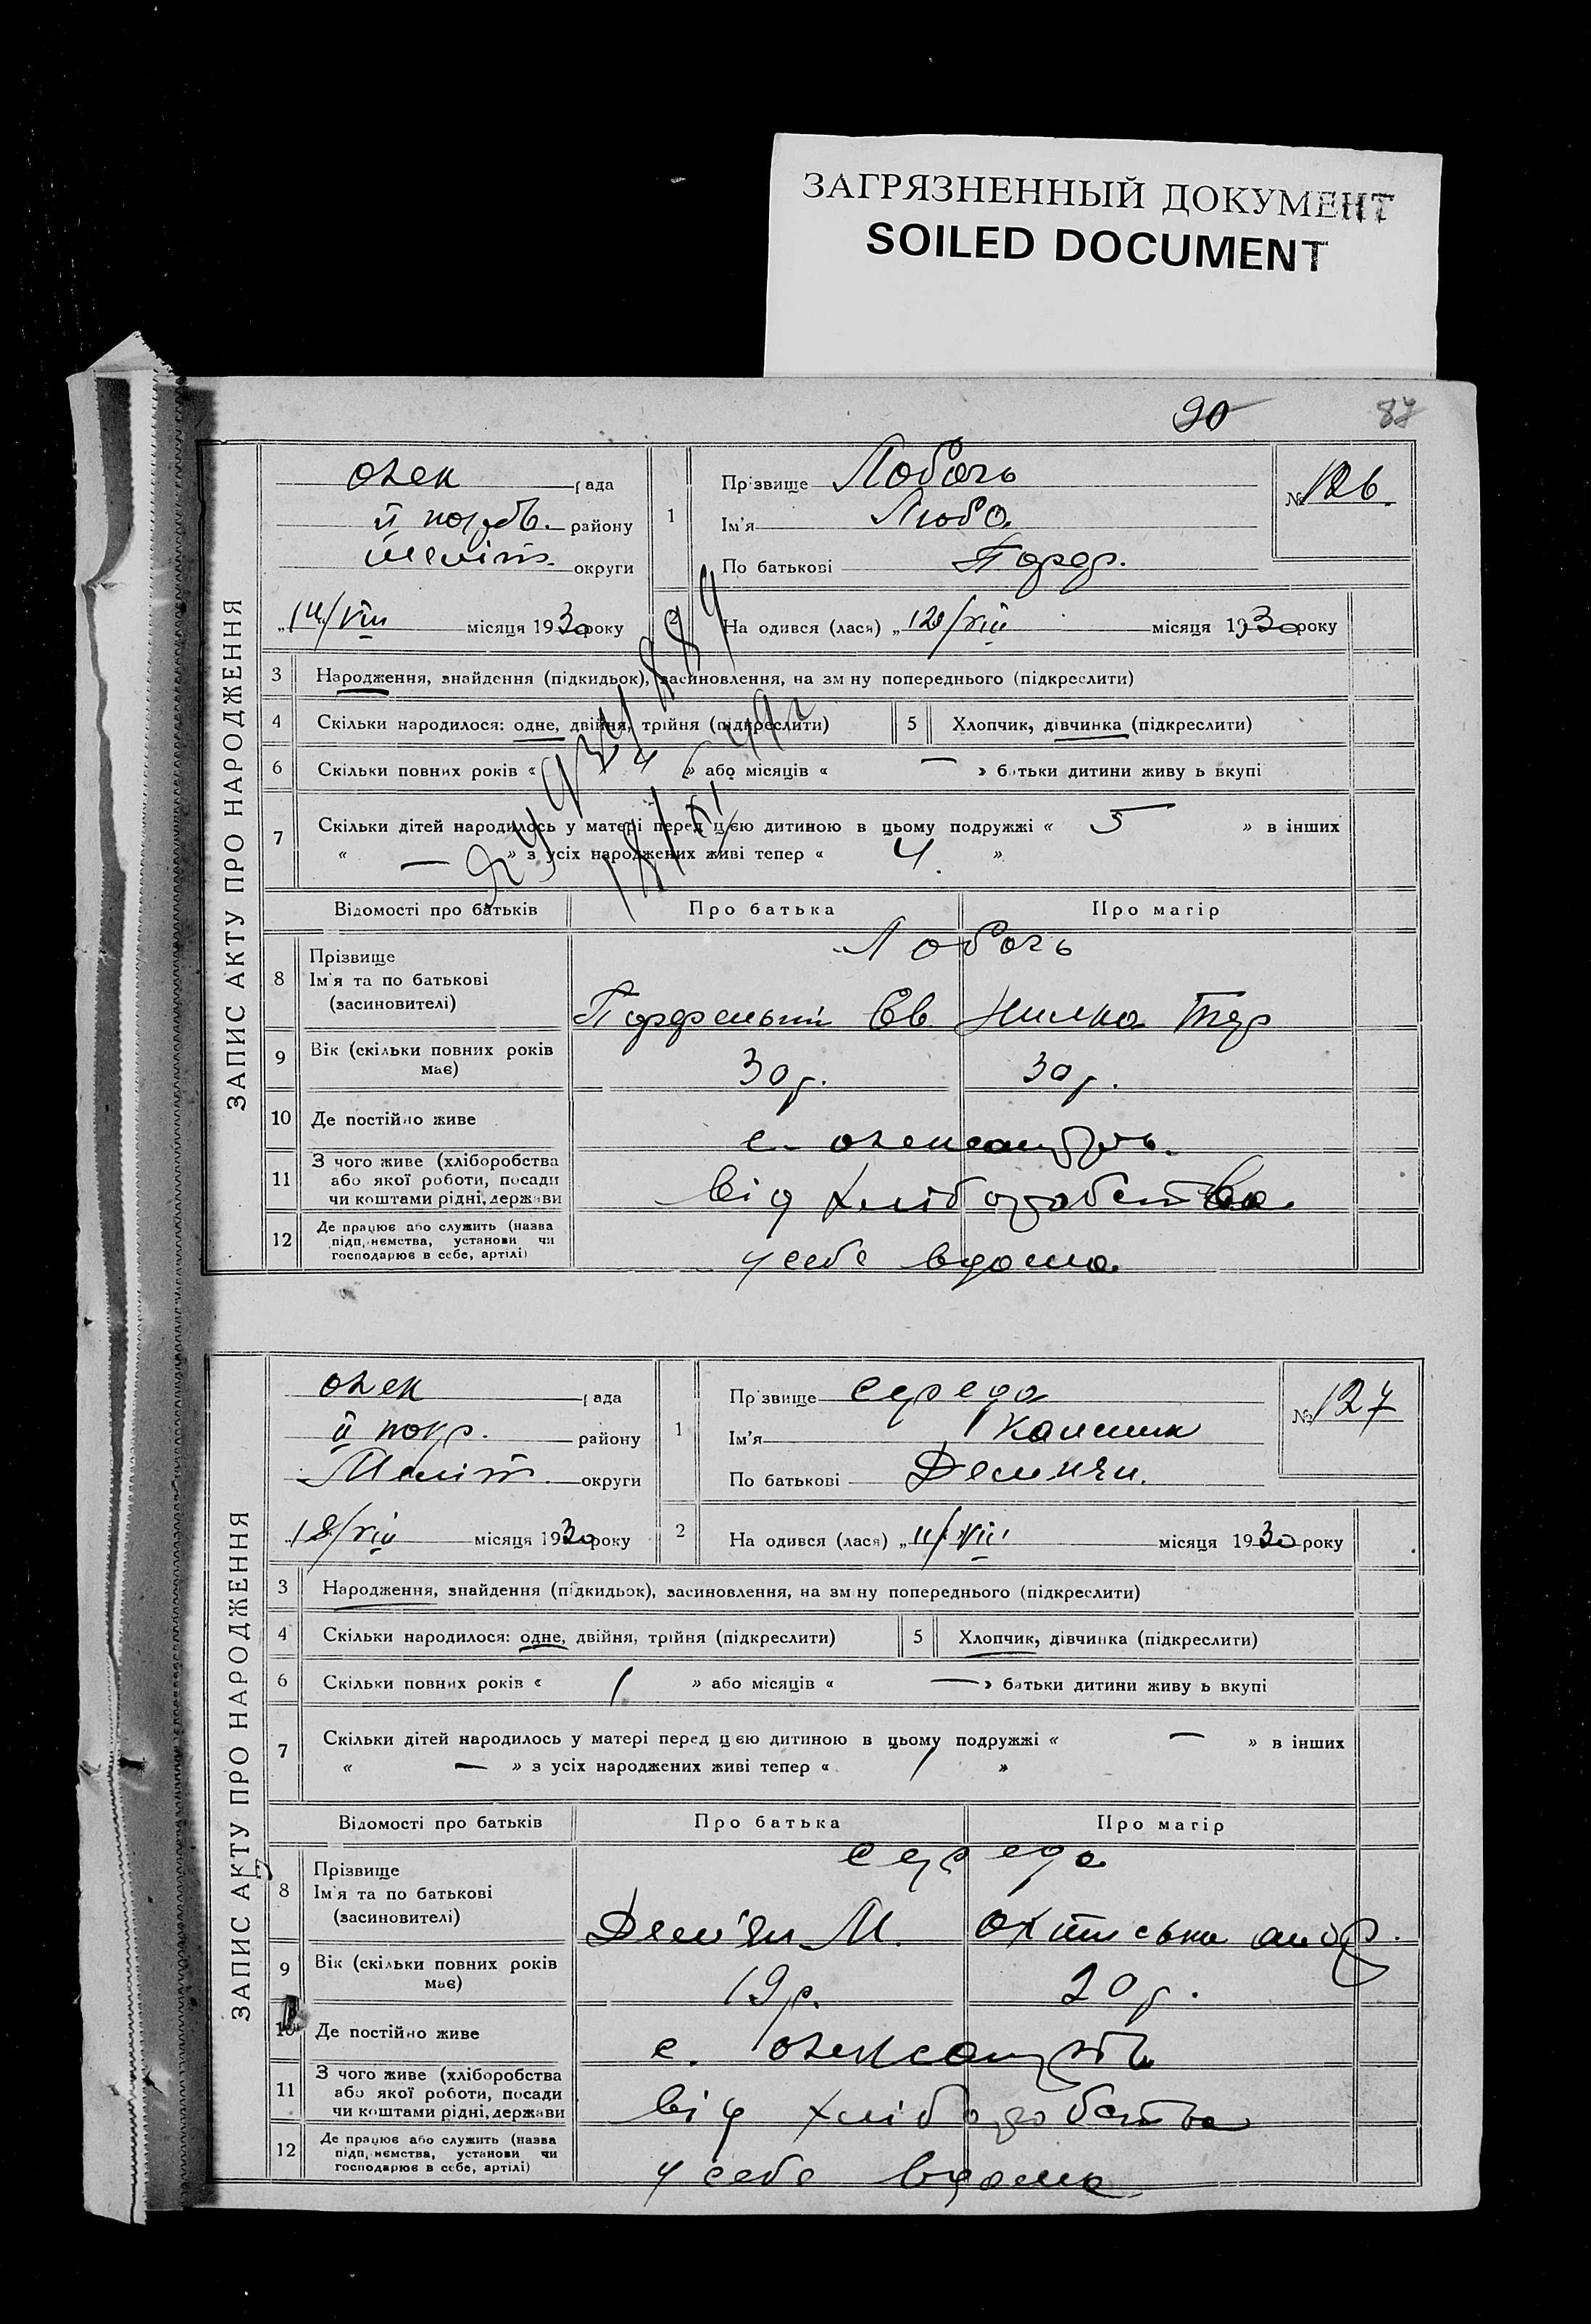 ЗАГРЯЗНЕННЫЙ ДОКУМЕНТ
SOILED DOCUMENT
90 87
ЗАПИС АКТУ ПРО НАРОДЖЕННЯ
Олек рада
району
Меліт. округи
14/VIII місяця 1930 року
1
Прізвище Лобачь
Ім'я Люба
По батькові Парф.
№ 126.
2 На одився (лася) „ /VIII місяця 1930 року
3 Народження, знайдення (підкидьок), засиновлення, на зм ну попереднього (підкреслити)
4 Скільки народилося: одне, двійня, трійня (підкреслити) 5 Хлопчик, дівчинка (підкреслити)
6 Скільки повних років « » або місяців « — » батьки дитини живу ь вкупі
7 Скільки дітей народилось у матері перед цією дитиною в цьому подружжі « 5 » в інших
« — » з усіх народжених живі тепер « 4 »
Відомості про батьків Про батька Про матір
8 Прізвище
Ім'я та по батькові
(засиновителі)
Лобачь
9 Вік (скільки повних років має) 30 р. 30 р.
10 Де постійно живе с.
11 З чого живе (хліборобства
або якої роботи, посади
чи коштами рідні, держави
від хліборобства
12 Де працює або служить (назва
підп, иємства, установи чи
господарює в себе, артілі)
у себе вдома
ЗАПИС АКТУ ПРО НАРОДЖЕННЯ
Олек рада
й покр. району
Меліт. округи
18/VIII місяця 1930 року
1
Прізвище Середа
Ім'я
По батькові Демиян.
№ 127
2 На одився (лася) „ 11/VIII місяця 1930 року
3 Народження, знайдення (підкидьок), засиновлення, на зм ну попереднього (підкреслити)
4 Скільки народилося: одне, двійня, трійня (підкреслити) 5 Хлопчик, дівчинка (підкреслити)
6 Скільки повних років « 1 » або місяців « — » батьки дитини живу ь вкупі
7 Скільки дітей народилось у матері перед цією дитиною в цьому подружжі « — » в інших
« — » з усіх народжених живі тепер « 1 »
Відомості про батьків Про батька Про матір
8 Прізвище
Ім'я та по батькові
(засиновителі)
Середа
Дем'ян М. андр.
9 Вік (скільки повних років має) 19 р. 20 р.
10 Де постійно живе с.
11 З чого живе (хліборобства
або якої роботи, посади
чи коштами рідні, держави
від хліборобства
12 Де працює або служить (назва
підп, иємства, установи чи
господарює в себе, артілі)
у себе вдома